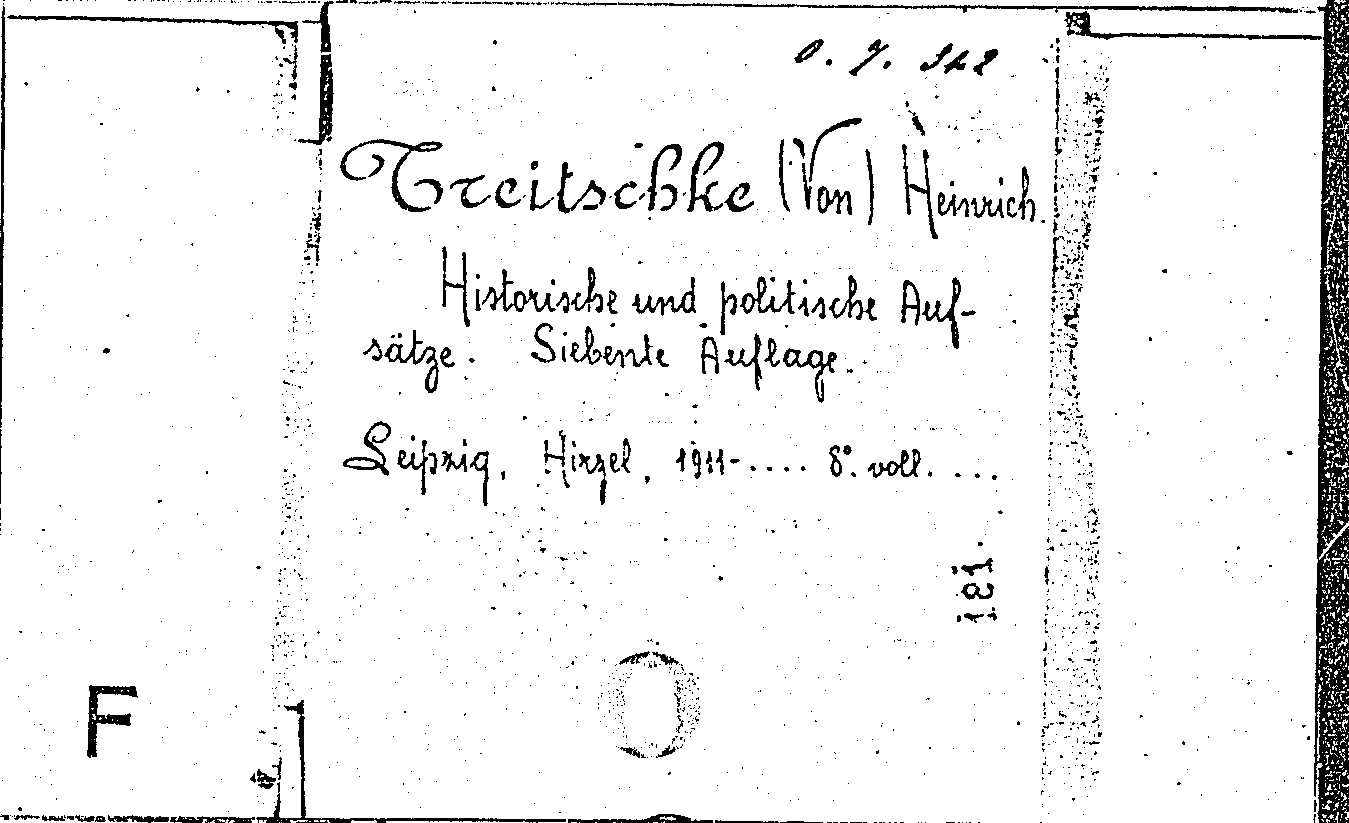 O. 7. 342
Treitschke (Von) Heinrich.
Historische und politische Auf-
sätze. Siebente Auflage.
Leipzig, Hirzel, 1911-.... 8°. voll. ...
F